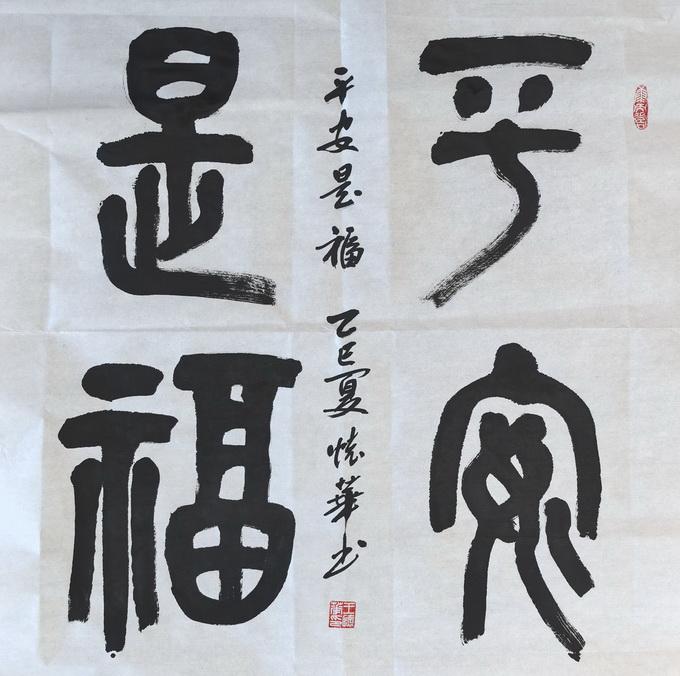 平安
是福
平安是福 乙巳夏 怀華书